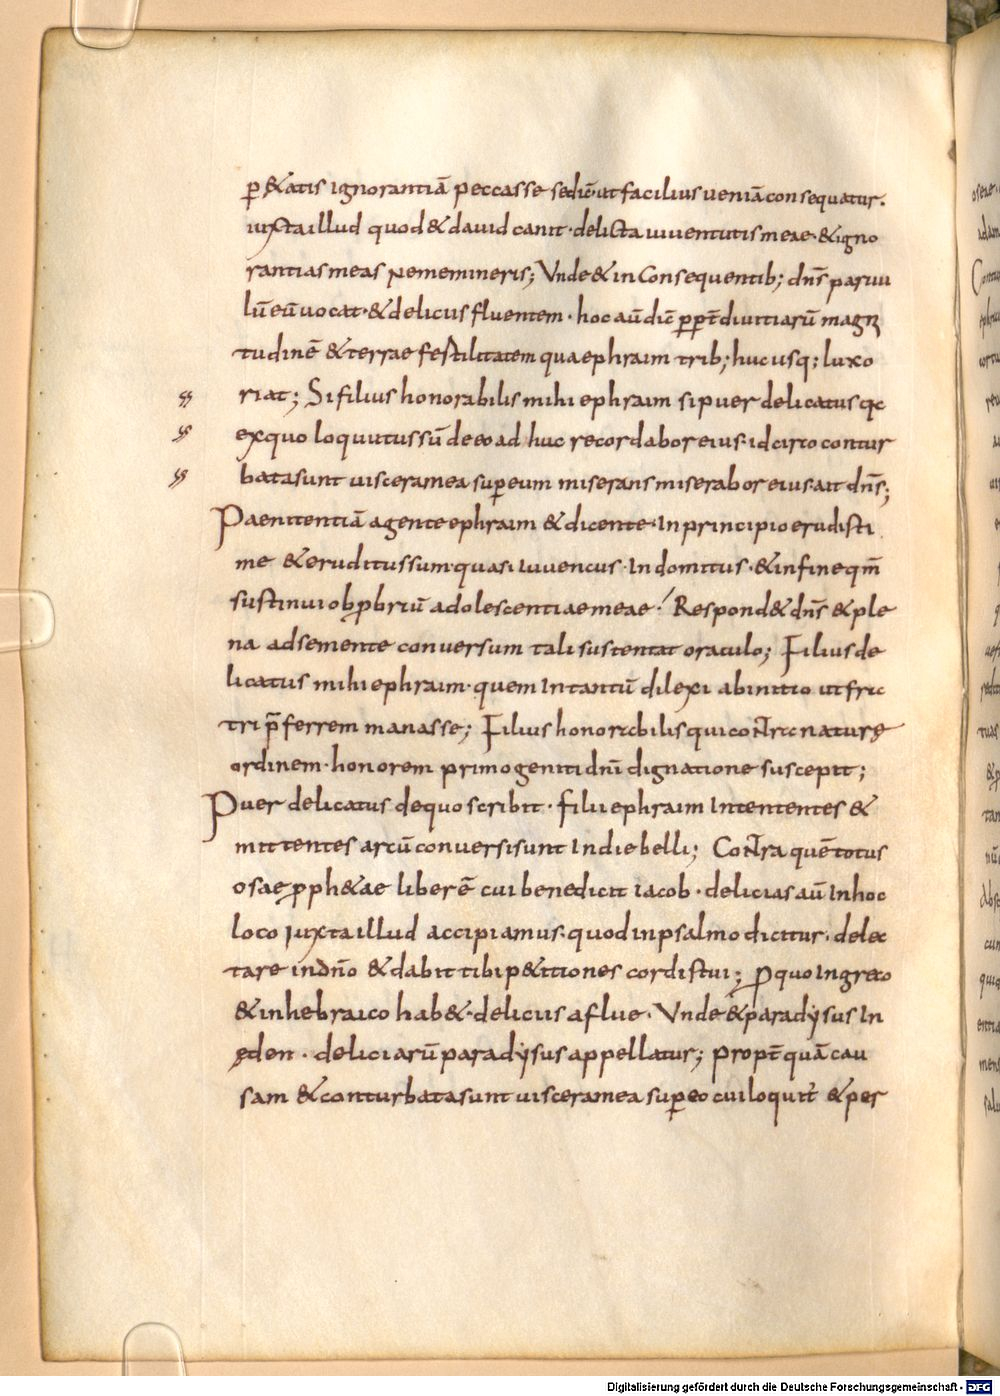 p&atis ignorantiā peccasse sedic̄· ut facilius ueniā consequatur·
iuxta illud quod & dauid canit· delicta iuuentutis meae· & igno
rantias meas nememineris; Vnde & in consequentib; dn̄s paruu
lū eū uocat· & delicus fluentem· hoc aū dic̄ ꝑꝑt̄ diuitiarū magni
tudinē & terrae festilitatem qua ephraim trib; huc usq; luxo
riat; Si filius honorabilis mihi ephraim si puer delicatus qc
ex quo loquutus sū de eo ad huc recordabor eius· idcirco contur
bata sunt uiscera mea suꝑ eum miserans miserabor eius· ait dn̄s;
Paenitentiā agente ephraim & dicente· In principio erudisti
me & eruditus sum· quasi iuuencus· Indomitus· & in fine qm̄
sustinui obꝓbriū adolescentiae meae·' Respond& dn̄s & ple
na adse mente conuersum tali sustentat oraculo; Filius de
licatus mihi ephraim· quem In tantū dilexi ab initio ut fric
tri p̄ferrem manasse; Filius honorabilis qui contra naturę
ordinem· honorem primogeniti dn̄i dignatione suscepit;
Puer delicatus de quo scribit· filii ephraim Intententes &
mittentes arcū conuersi sunt In die belli; Contra quē totus
osae ꝓph&ae liber ē cui benedicit iacob· delicias aū In hoc
loco iuxta illud accipiamus· quod in psalmo dicitur· delec
tare in dn̄o & dabit tibi p&itiones cordis tui; ꝓ quo In greco
& in hebraico hab&· delicus aflue· Vnde & paradẏsus In
ęden· deliciarū paradẏsus appellatur; propt̄ quā cau
sam & conturbata sunt uiscera mea suꝑ eo cui loquit̄ & per
ꝯ
ꝯ
ꝯ
Digitalisierung gefördert durch die Deutsche Forschungsgemeinschaft - DFG